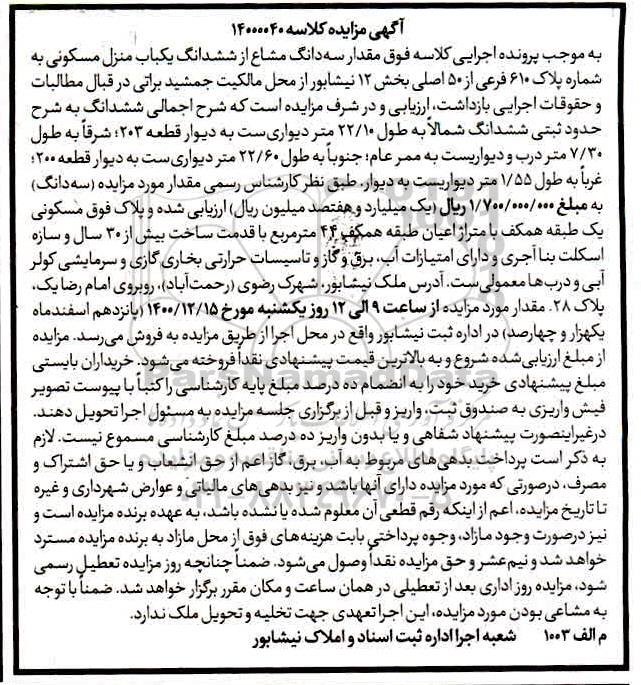 آگهی مزایده کلاسه ۱۴۰۰۰۰۴۰
به موجب پرونده اجرایی کلاسه فوق مقدار سه‌دانگ مشاع از ششدانگ یکباب منزل مسکونی به
شماره پلاک ۶۱۰ فرعی از ۵۰ اصلی بخش ۱۲ نیشابور از محل مالکیت جمشید براتی در قبال مطالبات
و حقوقات اجرایی بازداشت، ارزیابی و در شرف مزایده است که شرح اجمالی ششدانگ به شرح
حدود ثبتی ششدانگ شمالاً به طول ۲۲/۱۰ متر دیواری‌ست به دیوار قطعه ۲۰۳؛ شرقاً به طول
۷/۳۰ متر درب و دیواریست به ممر عام؛ جنوباً به طول ۲۲/۶۰ متر دیواری‌ست به دیوار قطعه ۲۰۰؛
غرباً به طول ۱/۵۵ متر دیواریست به دیوار. طبق نظر کارشناس رسمی مقدار مورد مزایده (سه‌دانگ)
به مبلغ ۱/۷۰۰/۰۰۰/۰۰۰ ریال (یک میلیارد و هفتصد میلیون ریال) ارزیابی شده و پلاک فوق مسکونی
یک طبقه همکف با متراژ اعیان طبقه همکف ۴۴ مترمربع با قدمت ساخت بیش از ۳۰ سال و سازه
اسکلت بنا آجری و دارای امتیازات آب، برق و گاز و تاسیسات حرارتی بخاری گازی و سرمایشی کولر
آبی و درب‌ها معمولی‌ست. آدرس ملک نیشابور، شهرک رضوی (رحمت‌آباد)، روبروی امام رضا یک،
پلاک ۲۸. مقدار مورد مزایده از ساعت ۹ الی ۱۲ روز یکشنبه مورخ ۱۴۰۰/۱۲/۱۵ (پانزدهم اسفندماه
یکهزار و چهارصد) در اداره ثبت نیشابور واقع در محل اجرا از طریق مزایده به فروش می‌رسد. مزایده
از مبلغ ارزیابی‌شده شروع و به بالاترین قیمت پیشنهادی نقداً فروخته می‌شود. خریداران بایستی
مبلغ پیشنهادی خرید خود را به انضمام ده درصد مبلغ پایه کارشناسی را کتباً با پیوست تصویر
فیش واریزی به صندوق ثبت، واریز و قبل از برگزاری جلسه مزایده به مسئول اجرا تحویل دهند.
درغیراینصورت پیشنهاد شفاهی و یا بدون واریز ده درصد مبلغ کارشناسی مسموع نیست. لازم
به ذکر است پرداخت بدهی‌های مربوط به آب، برق، گاز اعم از حق انشعاب و یا حق اشتراک و
مصرف، درصورتی که مورد مزایده دارای آنها باشد و نیز بدهی‌های مالیاتی و عوارض شهرداری و غیره
تا تاریخ مزایده، اعم از اینکه رقم قطعی آن معلوم شده یا نشده باشد، به عهده برنده مزایده است و
نیز درصورت وجود مازاد، وجوه پرداختی بابت هزینه‌های فوق از محل مازاد به برنده مزایده مسترد
خواهد شد و نیم‌عشر و حق مزایده نقداً وصول می‌شود. ضمناً چنانچه روز مزایده تعطیل رسمی
شود، مزایده روز اداری بعد از تعطیلی در همان ساعت و مکان مقرر برگزار خواهد شد. ضمناً با توجه
به مشاعی بودن مورد مزایده، این اجرا تعهدی جهت تخلیه و تحویل ملک ندارد.
م الف ۱۰۰۳ شعبه اجرا اداره ثبت اسناد و املاک نیشابور